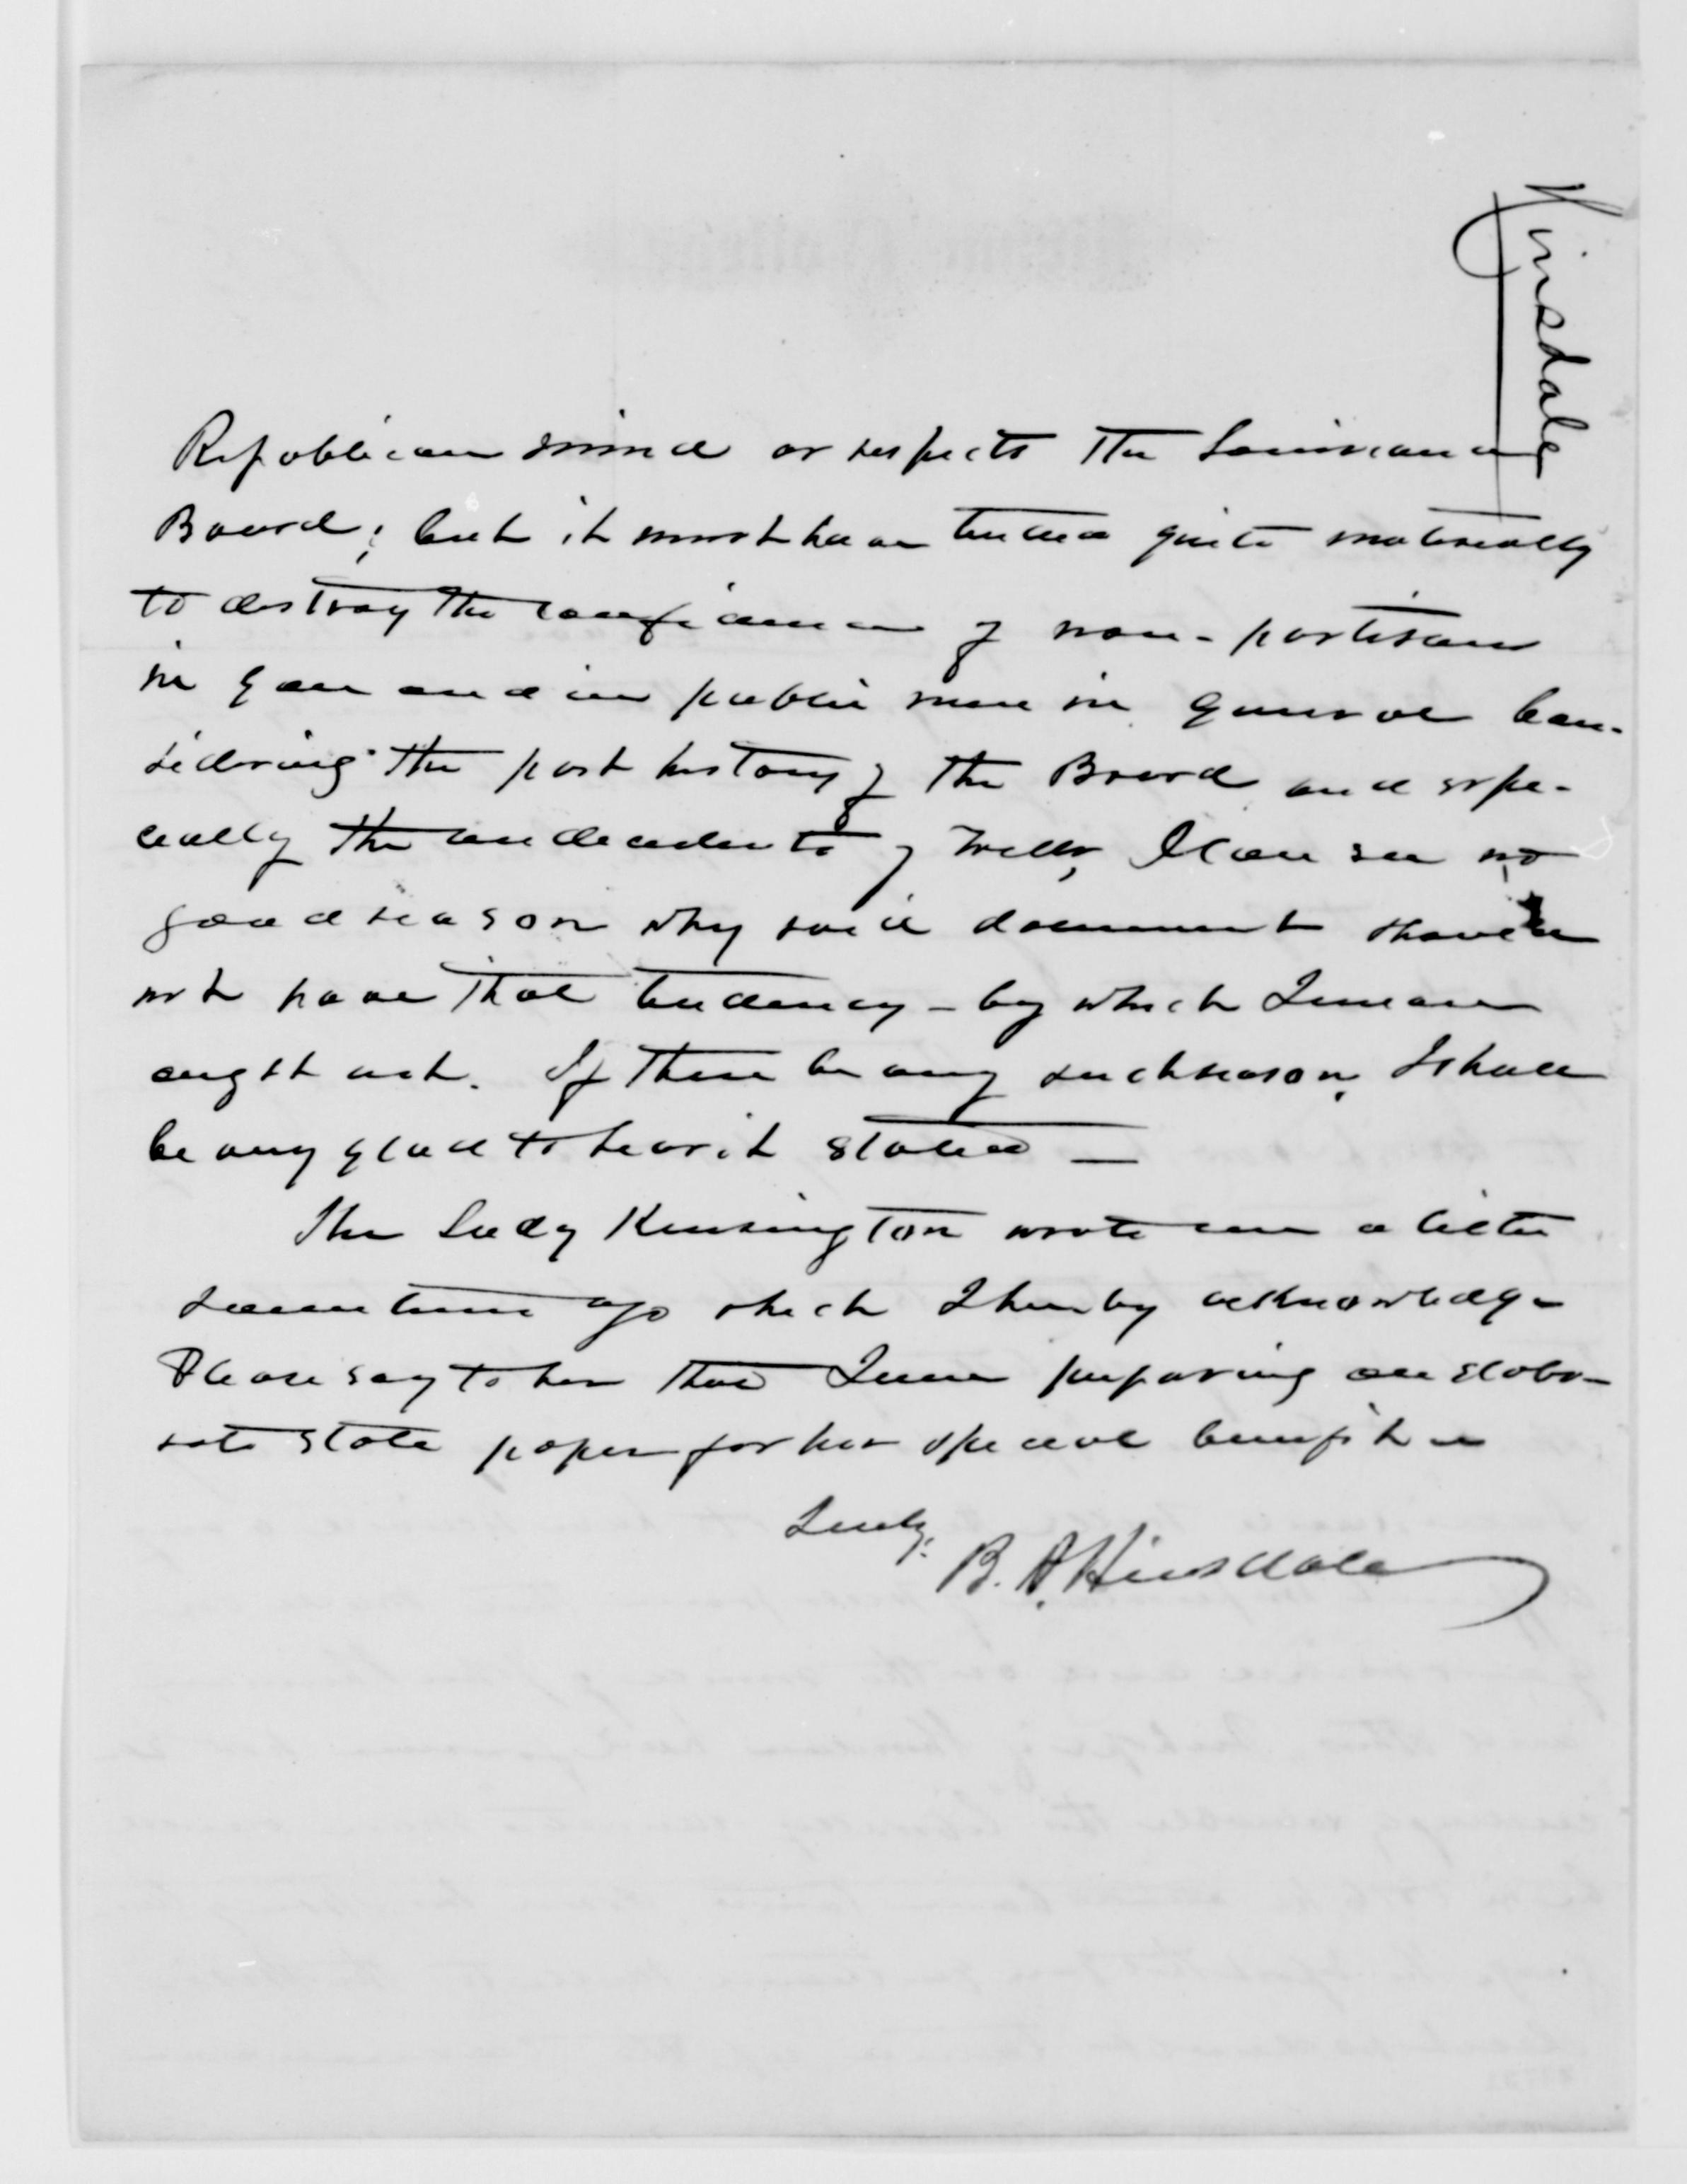 Hinsdale
Republican mind as respects the Louisiana
Board; but it must have tended quite materially
to destroy the confidence of non-partisans
in you and in public men in general. Con-
sidering the past history of the Board and espe-
cially the antecedents of Wells, I can see no
good reason why said document should
not have that tendency – by which I mean
ought not. If there be any such reason, I shall
be very glad to hear it stated —
The Lady Kensington wrote me a letter
sometime ago which I hereby acknowledge
Please say to her that I am preparing an elabo-
rate state paper for her special benefit
Truly,
B. A. Hinsdale